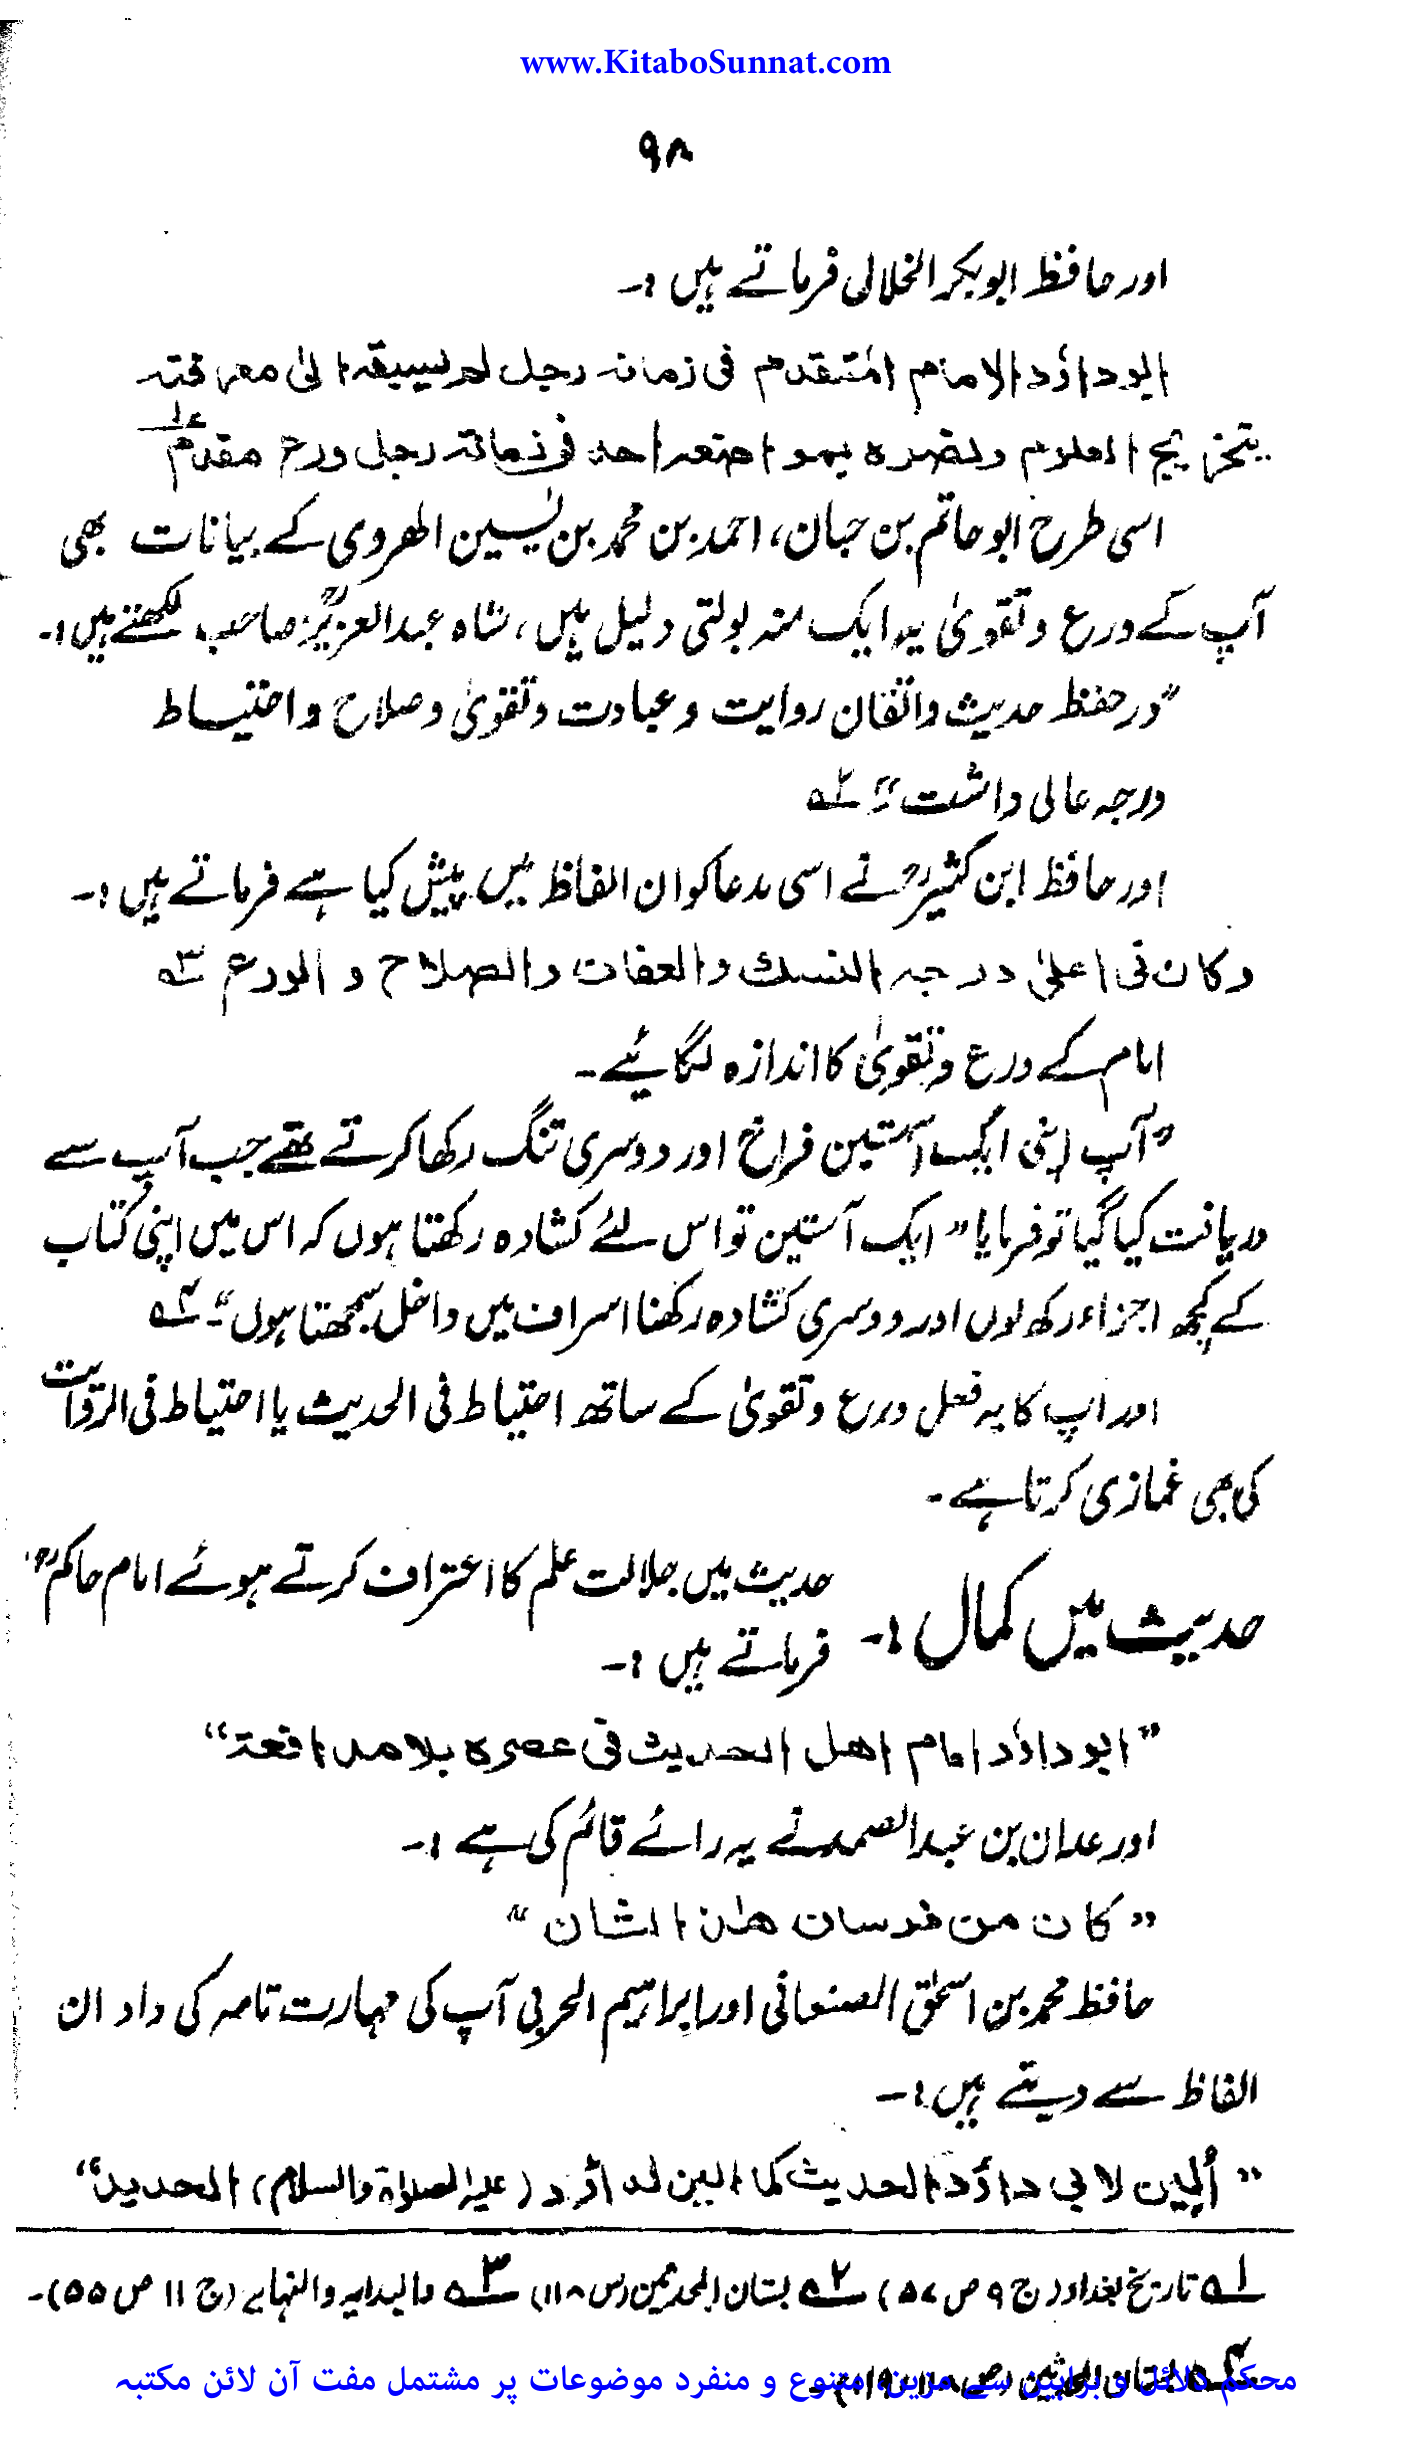 www.KitaboSunnat.com
۹۸
اور حافظ ابوبکر الخلالی فرماتے ہیں :۔
ابو داؤد الامام المتقدم فی زمانہ رجل لم یسبقہ الیٰ معرفتہ
بتخریج العلوم وبصرہ بمواضعہ احد فی زمانہ رجل ورع مقدم ؂۱
اسی طرح ابو حاتم بن حبان، احمد بن محمد بن یٰسین الھروی کے بیانات بھی
آپ کے ورع و تقویٰ پہ ایک منہ بولتی دلیل ہیں، شاہ عبدالعزیزؒ صاحب لکھتے ہیں :۔
"در حفظ حدیث واتقان روایت و عبادت و تقویٰ و صلاح و احتیاط
درجہ عالی داشت" ؂۲
اور حافظ ابن کثیرؒ نے اسی مدعا کو ان الفاظ میں پیش کیا ہے فرماتے ہیں :۔
وکان فی اعلیٰ درجہ النسک والعفات والصلاح و الورع ؂۳
امام کے ورع و تقویٰ کا اندازہ لگائیے ۔
"آپ اپنی ایک آستین فراخ اور دوسری تنگ رکھا کرتے تھے جب آپ سے
دریافت کیا گیا تو فرمایا "ایک آستین تو اس لئے کشادہ رکھتا ہوں کہ اس میں اپنی کتاب
کے کچھ اجزاء رکھ لوں اور دوسری کشادہ رکھنا اسراف میں داخل سمجھتا ہوں"۔ ؂۴
اور اپ کا یہ فعل ورع و تقویٰ کے ساتھ احتیاط فی الحدیث یا احتیاط فی الروایت
کی بھی غمازی کرتا ہے ۔
حدیث میں کمال :۔ حدیث میں جلالت علم کا اعتراف کرتے ہوئے امام حاکمؒ
فرماتے ہیں :۔
"ابو داؤد امام اھل الحدیث فی عصرہ بلا مدافعۃ"
اور علان بن عبد الصمد نے یہ رائے قائم کی ہے :۔
"کان من فرسان ھٰذا الشان"
حافظ محمد بن اسحٰق الصنعانی اور ابراہیم الحربی آپ کی مہارت تامہ کی داد ان
الفاظ سے دیتے ہیں :۔
"اُلین لابی داؤد الحدیث کما الین لداؤد (علیہ الصلوٰۃ والسلام) الحدید"
؂۱ تاریخ بغداد (ج ۹ ص ۵۷) ؂۲ بستان المحدثین (ص ۱۱۸) ؂۳ البدایہ والنہایہ (ج ۱۱ ص ۵۵)۔
؂۴ بستان المحدثین
محکم دلائل و براہین سے مزین، متنوع و منفرد موضوعات پر مشتمل مفت آن لائن مکتبہ